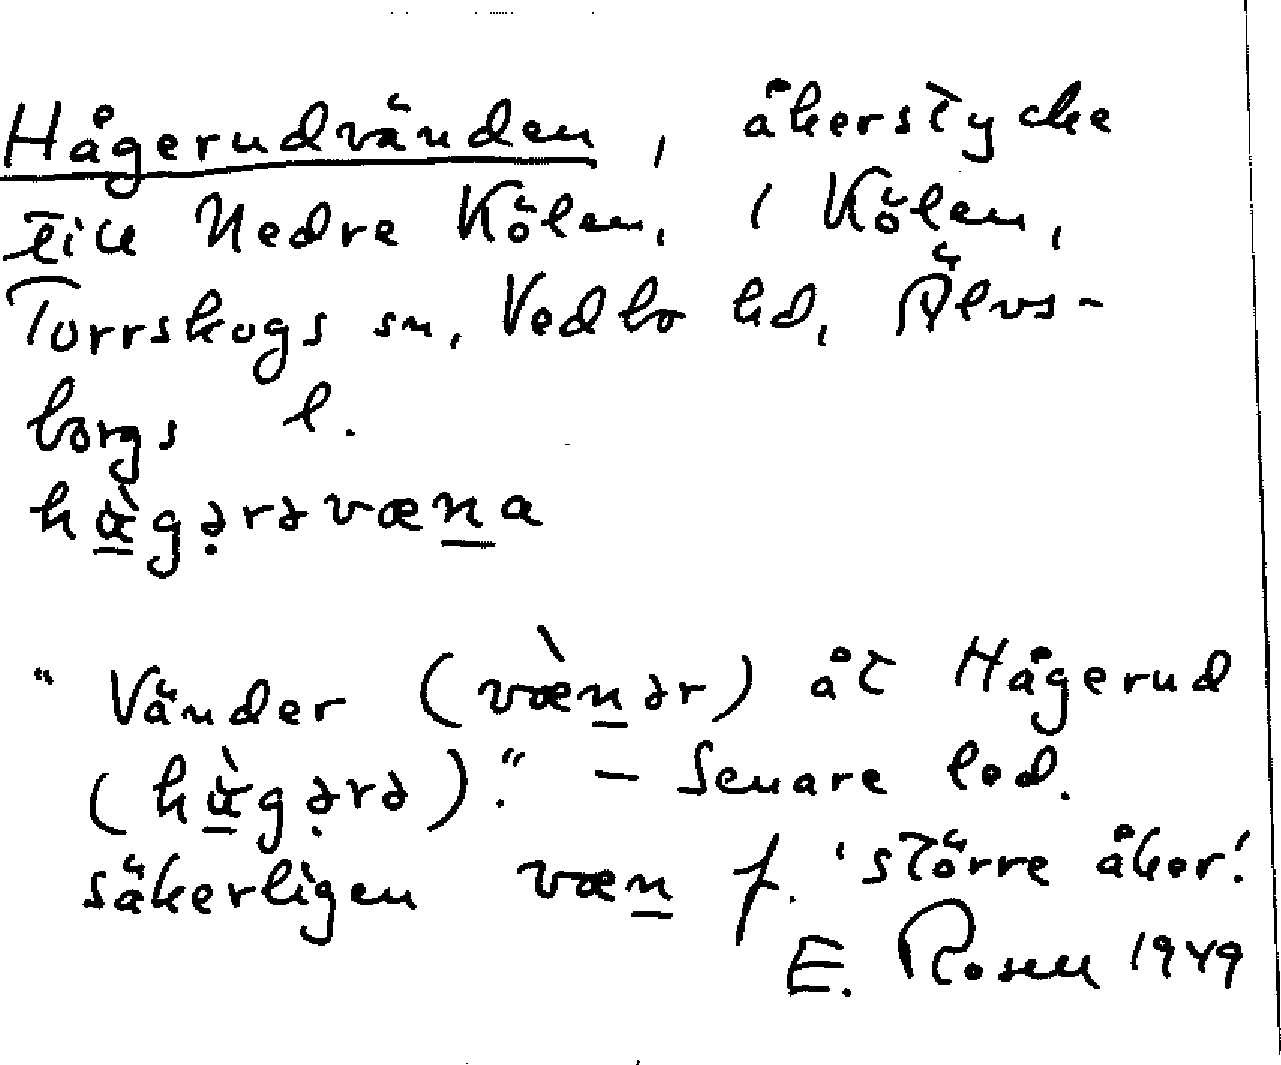 Hågerudvänden, åkerstycke
till Nedre Kölen, i Kölen,
Torrskogs sn, Vedbo hd, Älvs-
borgs l.
hàgərəvæna
"Vänder (væ̀nər) åt Hågerud
(hàgərə)." – Senare led.
säkerligen væn f. 'större åker'.
E. Rosen 1949